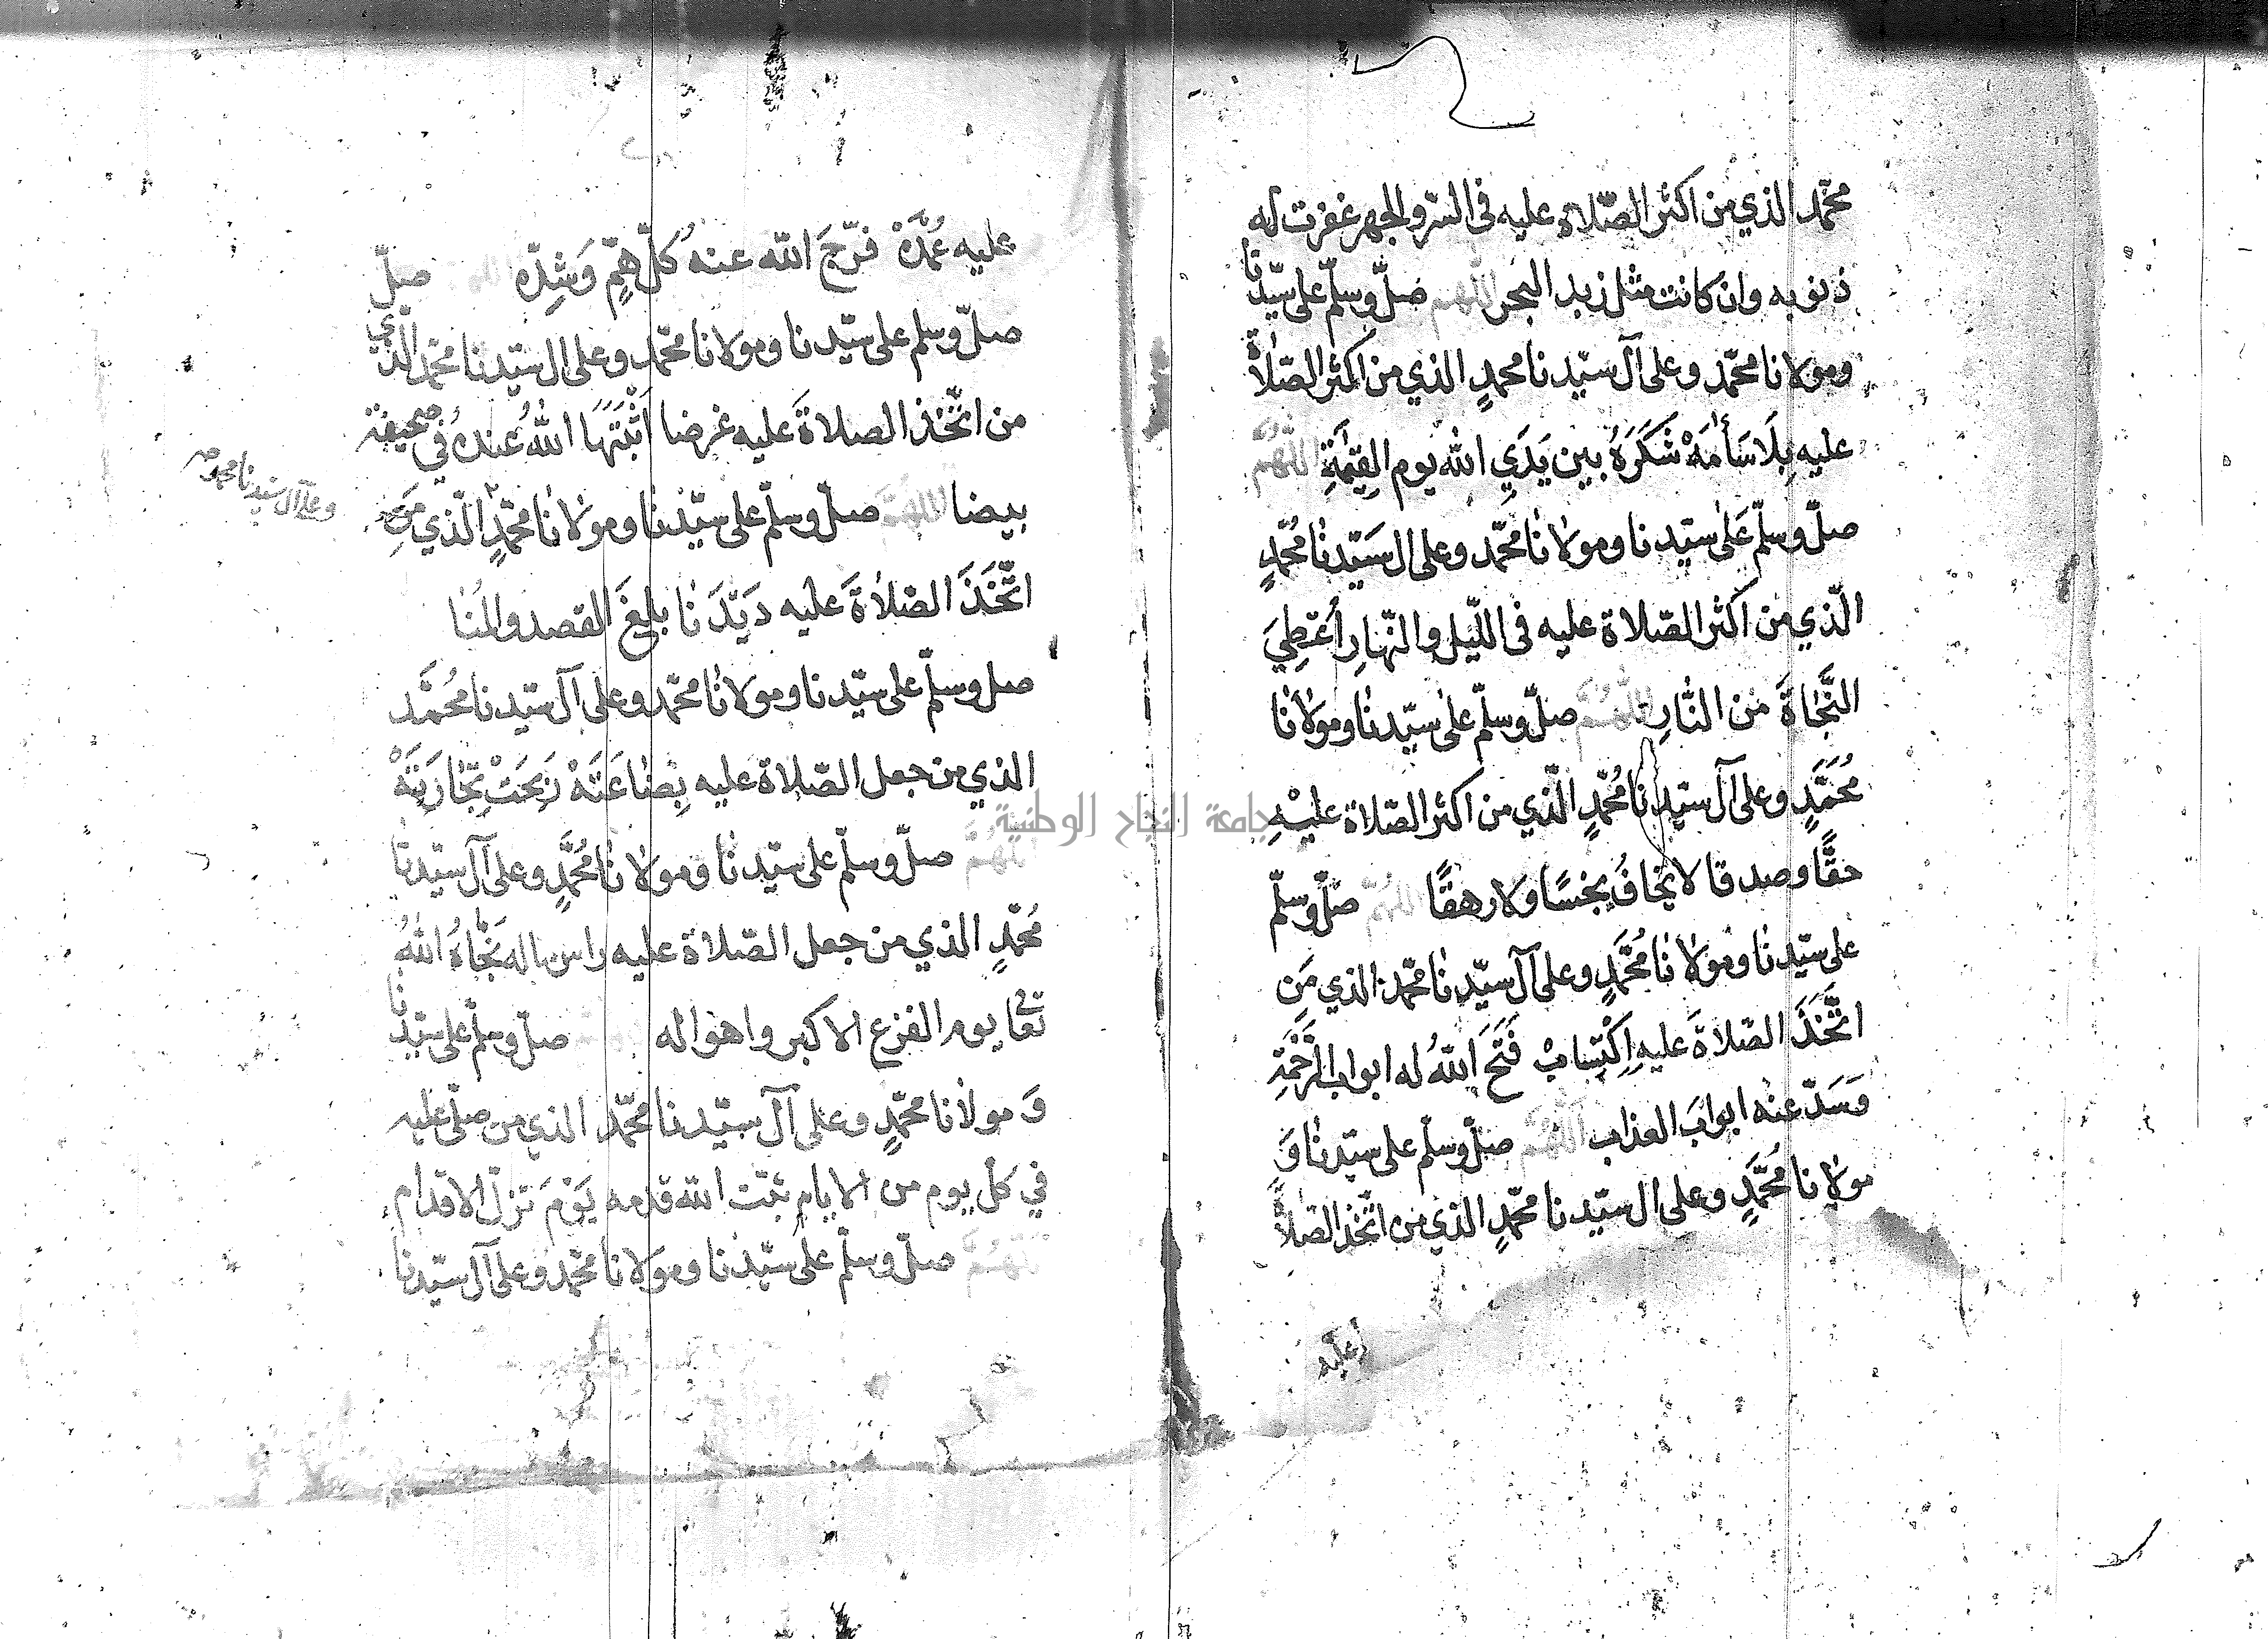 محمّد الذي من اكثر الصّلاة عليه في السّر والجهر غفرت له
ذنوبه وان كانت مثل زبد البحر اللهم صلّ وسلّم على سيّدنا
ومولانا محمّد وعلى آل سيّدنا محمدٍ الذي من اكثر الصّلاة
عليه بِلَا سَأمَهْ شَكَرَهُ بين يَدَيِ الله يوم القِيٰمَةِ اللّهُمَّ
صلّ وسلّم عَلىٰ سيّدنا ومولانا محمّد وعلى ال سَيّدنا مُحمّدٍ
الّذي من اكثر الصّلاة عليه في اللّيل والنّهارِ أُعْطِيَ
النَّجاةَ من النَّارِ اللّهُمَّ صلّ وسلّم على سيّدنا ومولانا
مُحَمَّدٍ وعلى آل سيّدنا مُحمّدٍ الّذي من اكثر الصّلاة عليْهِ
حقًّا وصدقا لا يخافُ بخسًا ولا رهقًا اللهُمّ صلّ وسلّم
على سيّدنا ومولانا مُحمَّدٍ وعلى آل سيّدنا محمّد الذي مَن
اتَّخَذَ الصّلاةَ عليهِ اِكْتِسابْ فَتَحَ اللّهُ له ابواب الرَّحْمَةِ
وَسَدّ عنه ابوابَ العذاب اللّهُمَّ صلّ وسلّم على سيّدنا وَ
مولانا مُحمَّدٍ وعلى ال سيّدنا محمّدٍ الذي من اتّخذ الصّلاةَ
عليه
عليه عُمْدَهْ فرّجَ الله عنه كلّ همٍّ وَشِدّه صلّ
صلّ وسلم على سيّدنا ومولانا محمّد وعلى ال سيّدنا محمّد الّذي
من اتّخذ الصلاةَ عليه غرضا اَثْبَتَهَا اللهُ عنده في صحيفة
بيضا اللهُمَّ صلّ وسلّم على سيّدنا ومولانا محمّدٍ الّذي مَن
وعلى آل سيدنا محمد صح
اتَّخَذَ الصّلاةَ عليه دَيْدَنا بلغَ القصد والمُنا
صل وسلّم على سيّدنا ومولانا محمّد وعلى آل سيّدنا مُحمَّد
الذي من جعل الصّلاة عليه بِضاعَتَهْ رَبِحَتْ تِجَارَتُهْ
اللهُمّ صلّ وسلّم على سيّدنا ومولانا مُحمَّدٍ وعلى آل سيّدنا
مُحمّدٍ الذي من جعل الصّلاة عليه راس ماله نَجَّاهُ اللهُ
تعالى يوم الفزع الاكبر واهواله صلّ وسلّم على سيّدنا
وَمولانا محمّدٍ وعلى آل سيّدنا محمّد الذي من صلّى عليه
في كلّ يوم من الايام ثبّت الله قدمه يَوْمَ تزلّ الاقدام
اللهُمّ صلّ وسلّم على سيّدنا ومولانا محمّد وعلى آل سيّدنا
جامعة النجاح الوطنية